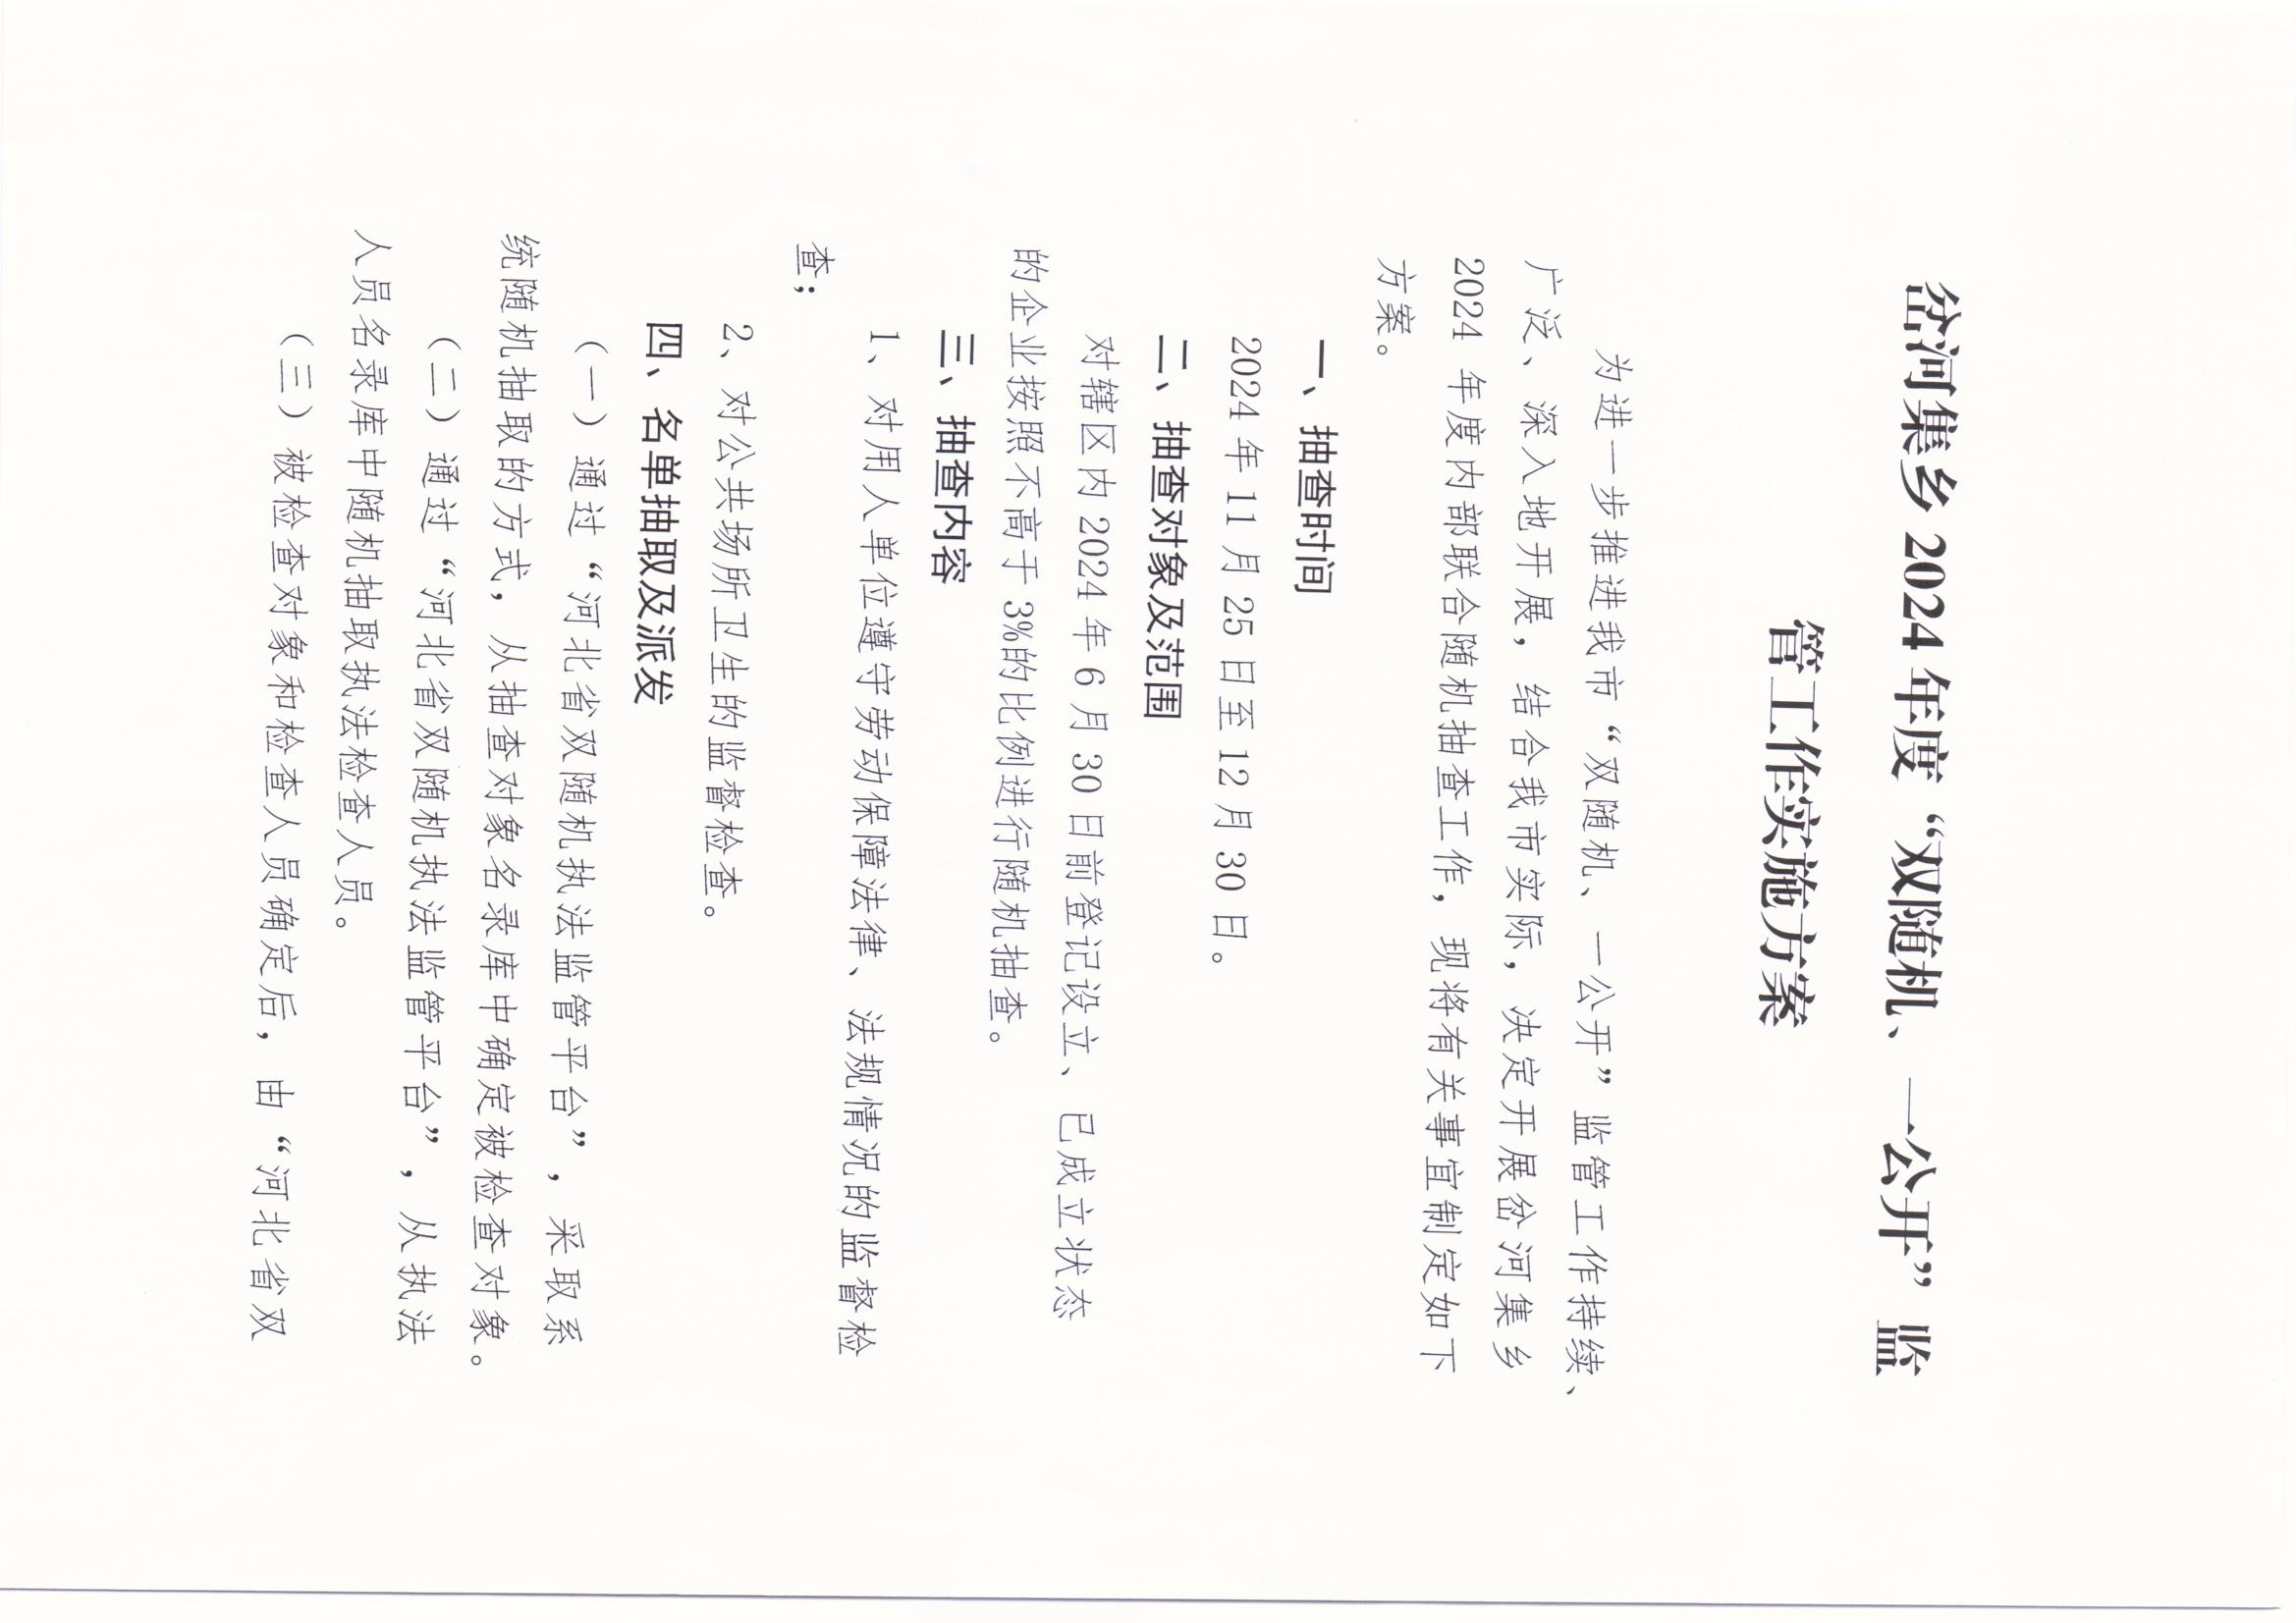 岔河集乡 2024 年度“双随机、一公开”监
管工作实施方案
为进一步推进我市“双随机、一公开”监管工作持续、
广泛、深入地开展，结合我市实际，决定开展岔河集乡
2024 年度内部联合随机抽查工作，现将有关事宜制定如下
方案。
一、抽查时间
2024 年 11 月 25 日至 12 月 30 日。
二、抽查对象及范围
对辖区内 2024 年 6 月 30 日前登记设立、已成立状态
的企业按照不高于 3%的比例进行随机抽查。
三、抽查内容
1、对用人单位遵守劳动保障法律、法规情况的监督检
查；
2、对公共场所卫生的监督检查。
四、名单抽取及派发
（一）通过“河北省双随机执法监管平台”，采取系
统随机抽取的方式，从抽查对象名录库中确定被检查对象。
（二）通过“河北省双随机执法监管平台”，从执法
人员名录库中随机抽取执法检查人员。
（三）被检查对象和检查人员确定后，由“河北省双